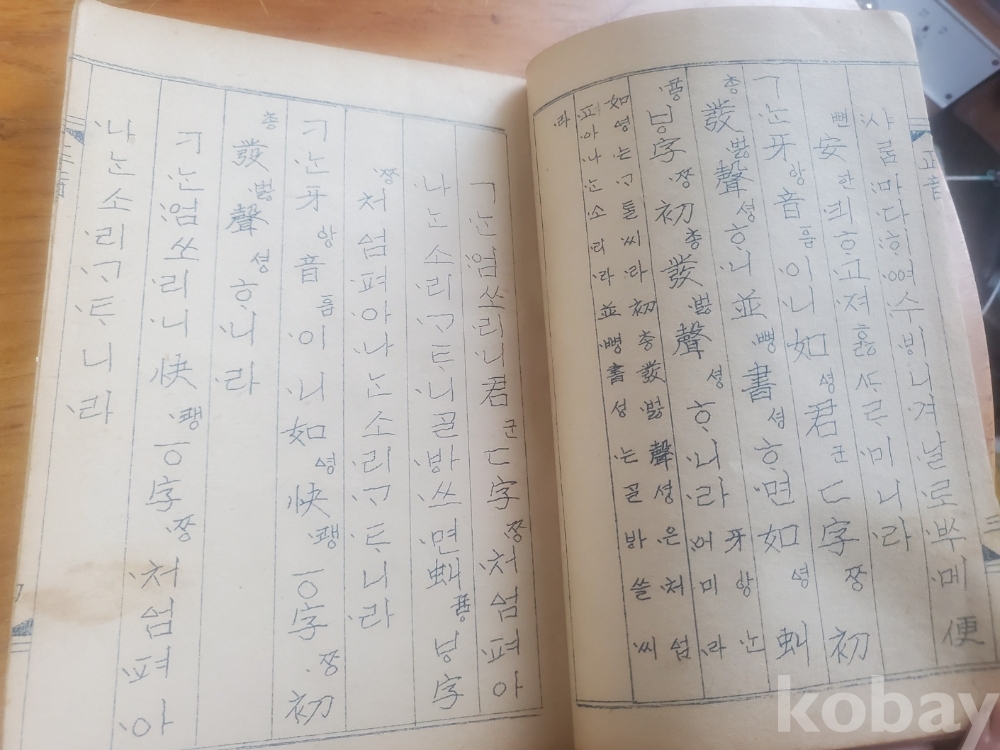 正音
사ᄅᆞᆷ마다ᄒᆡᅇᅧ수ᄫᅵ니겨날로ᄡᅮ메便
뼌安한킈ᄒᆞ고져ᄒᆞᇙᄯᆞᄅᆞ미니라
ㄱᄂᆞᆫ牙앙音흠이니如영君군ㄷ字ᄍᆞᆼ初
총發벓聲셩ᄒᆞ니並뼝書셩ᄒᆞ면如영虯
字ᄍᆞᆼ初총發벓聲셩ᄒᆞ니라牙앙ᄂᆞᆫ어미라
如영는ᄀᆞᄐᆞᆯ씨라初총發벓聲셩은처섬
펴아나ᄂᆞᆫ소리라並뼝書셩는ᄀᆞᆯ바쓸씨
라
ㄱᄂᆞᆫ엄쏘리니君군ㄷ字ᄍᆞᆼ처섬펴아
나ᄂᆞᆫ소리ᄀᆞᄐᆞ니ᄀᆞᆯ바쓰면虯字
ᄍᆞᆼ처섬펴아나ᄂᆞᆫ소리ᄀᆞᄐᆞ니라
ㄱᄂᆞᆫ牙앙音흠이니如영快쾡ㆆ字ᄍᆞᆼ初
총發벓聲셩ᄒᆞ니라
ㄱᄂᆞᆫ엄쏘리니快쾡ㆆ字ᄍᆞᆼ처섬펴아
나ᄂᆞᆫ소리ᄀᆞᄐᆞ니라
kobay